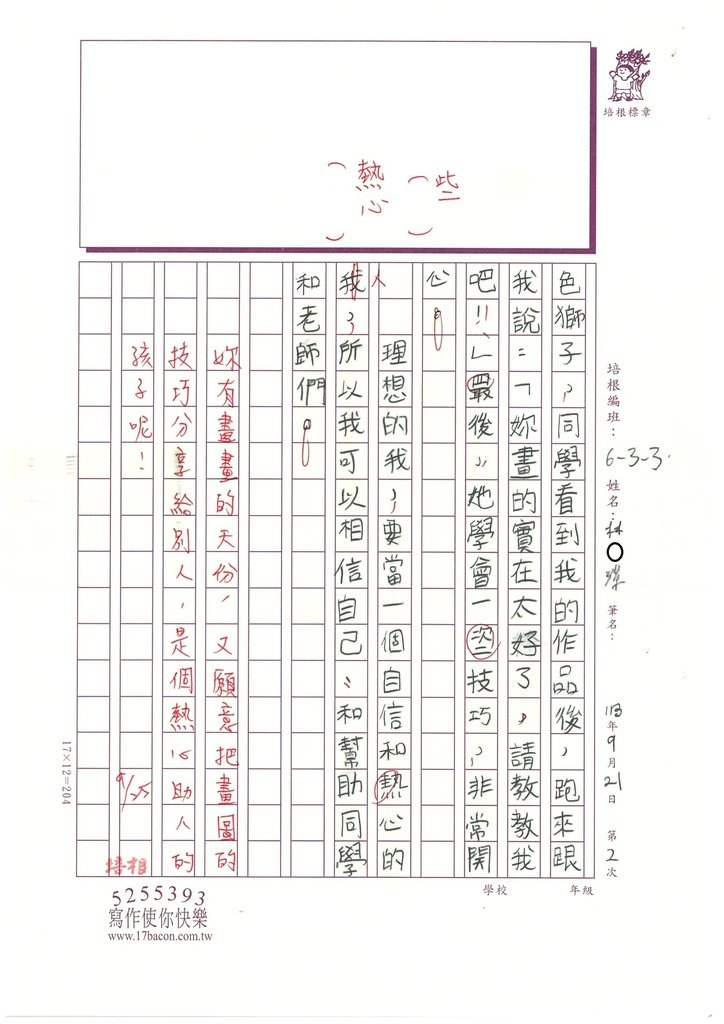 培根標章
培根編班：6-3-3.
姓名：林○
筆名：
113年9月21日 第2次
學校
年級
（些）
（熱心）
色獅子，同學看到我的作品後，跑來跟
我說：「妳畫的實在太好了，請教教我
吧！」最後，她學會一些技巧，非常開
心。
理想的我，要當一個自信和熱心的
人，所以我可以相信自己，和幫助同學
和老師們。
妳有畫畫的天份，又願意把畫圖的
技巧分享給別人，是個熱心助人的
孩子呢！
9/25
培根
17×12=204
5255393
寫作使你快樂
www.17bacon.com.tw